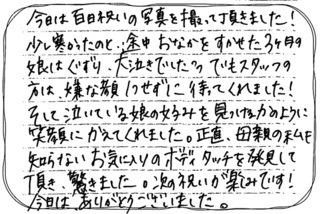 今日は百日祝いの写真を撮って頂きました!
少し寒かったのと、途中おなかをすかせた3ヶ月の
娘はぐずり、大泣きでした。。でもスタッフの
方は、嫌な顔1つせずに待ってくれました!
そして泣いている娘の好みを見つけるかのように
笑顔にかえてくれました。正直、母親の私も
知らないお気に入りのボディタッチを発見して
頂き、驚きました。次の祝いが楽みです!
今日はありがとうございました。